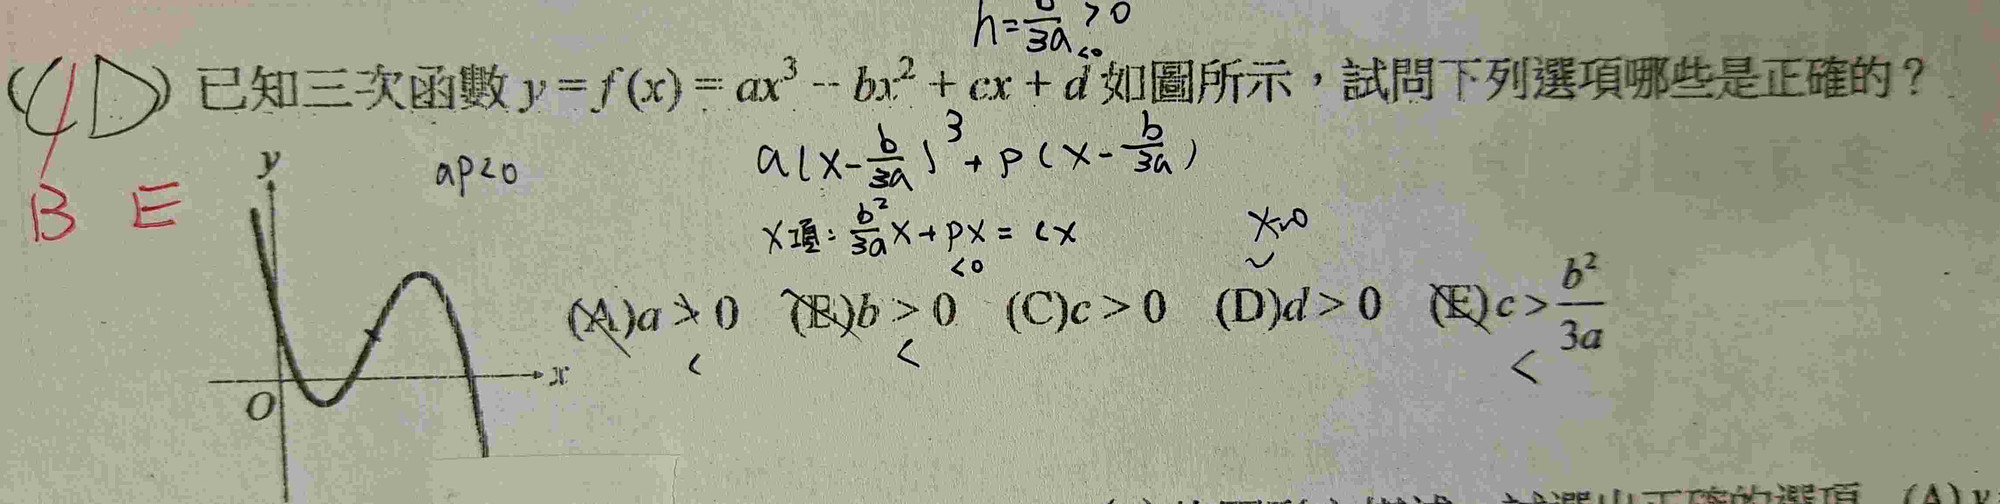 h=b/3a>0
<0
(CD) 已知三次函數 y = f(x) = ax³ - bx² + cx + d 如圖所示，試問下列選項哪些是正確的？
B E
ap<0
a(x-b/3a)³+p(x-b/3a)
x項: b²/3a x+px=cx
<0
x~0
y
(A)a > 0 (B)b > 0 (C)c > 0 (D)d > 0 (E)c > b²/3a
< < <
O x